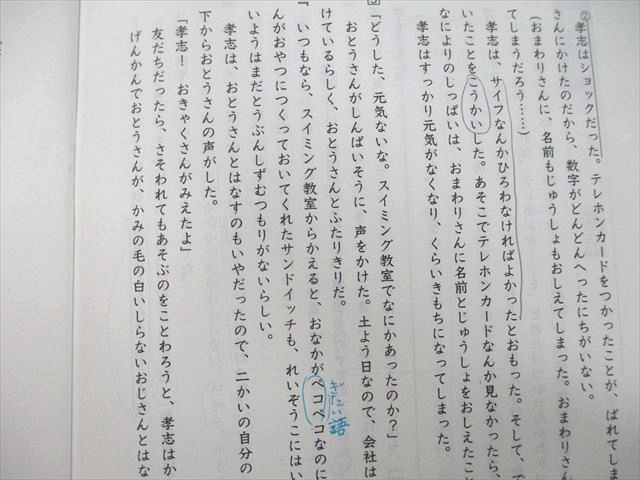 ②孝志はショックだった。テレホンカードをつかったことが、ばれてしま
さんにかけたのだから、数字がどんどんへったにちがいない。
（おまわりさんに、名前もじゅうしょもおしえてしまった。おまわりさん
てしまうだろう……）
孝志は、サイフなんかひろわなければよかったとおもった。そして、で
いたことをこうかいした。あそこでテレホンカードなんか見なかったら、
なによりのしっぱいは、おまわりさんに名前とじゅうしょをおしえたこと
孝志はすっかり元気がなくなり、くらいきもちになってしまった。
3
「どうした、元気ないな。スイミング教室でなにかあったのか？」
おとうさんがしんぱいそうに、声をかけた。土よう日なので、会社は
けているらしく、おとうさんとふたりきりだ。
いつもなら、スイミング教室からかえると、おなかがペコペコなのに
ぎたい語
んがおやつにつくっておいてくれたサンドイッチも、れいぞうこにはい
いようはまだとうぶんしずむつもりがないらしい。
孝志は、おとうさんとはなすのもいやだったので、二かいの自分の
下からおとうさんの声がした。
「孝志！　おきゃくさんがみえたよ」
友だちだったら、さそわれてもあそぶのをことわろうと、孝志はか
げんかんでおとうさんが、かみの毛の白いしらないおじさんとはな